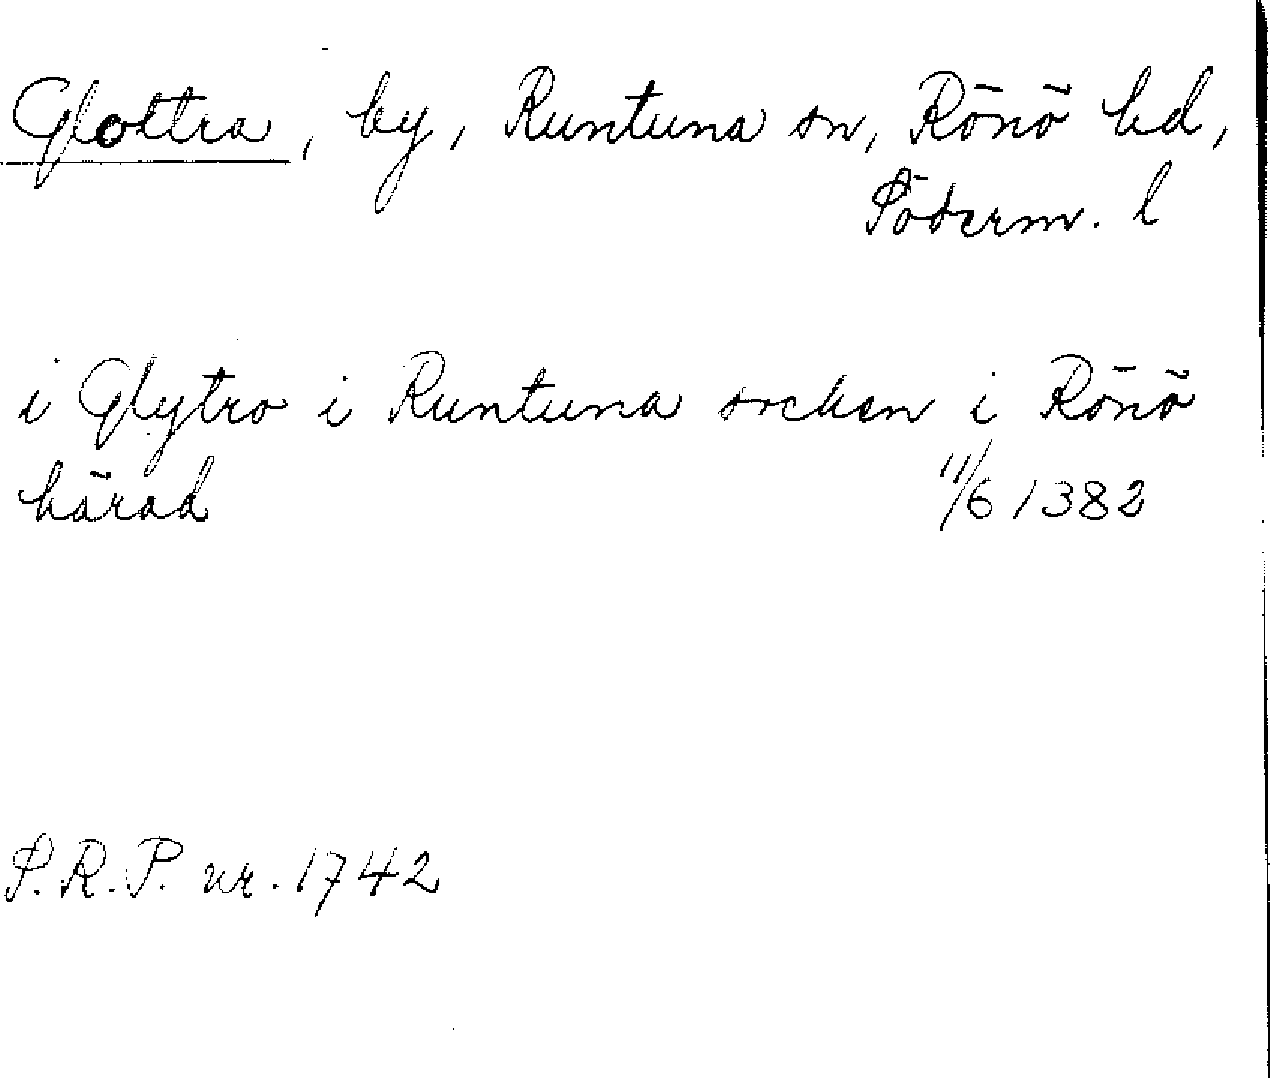 Glottra, by, Runtuna sn, Rönö hd,
Söderm. l
i Glytro i Runtuna socken i Rönö
härad 11/6 1382
S.R.P. nr. 1742